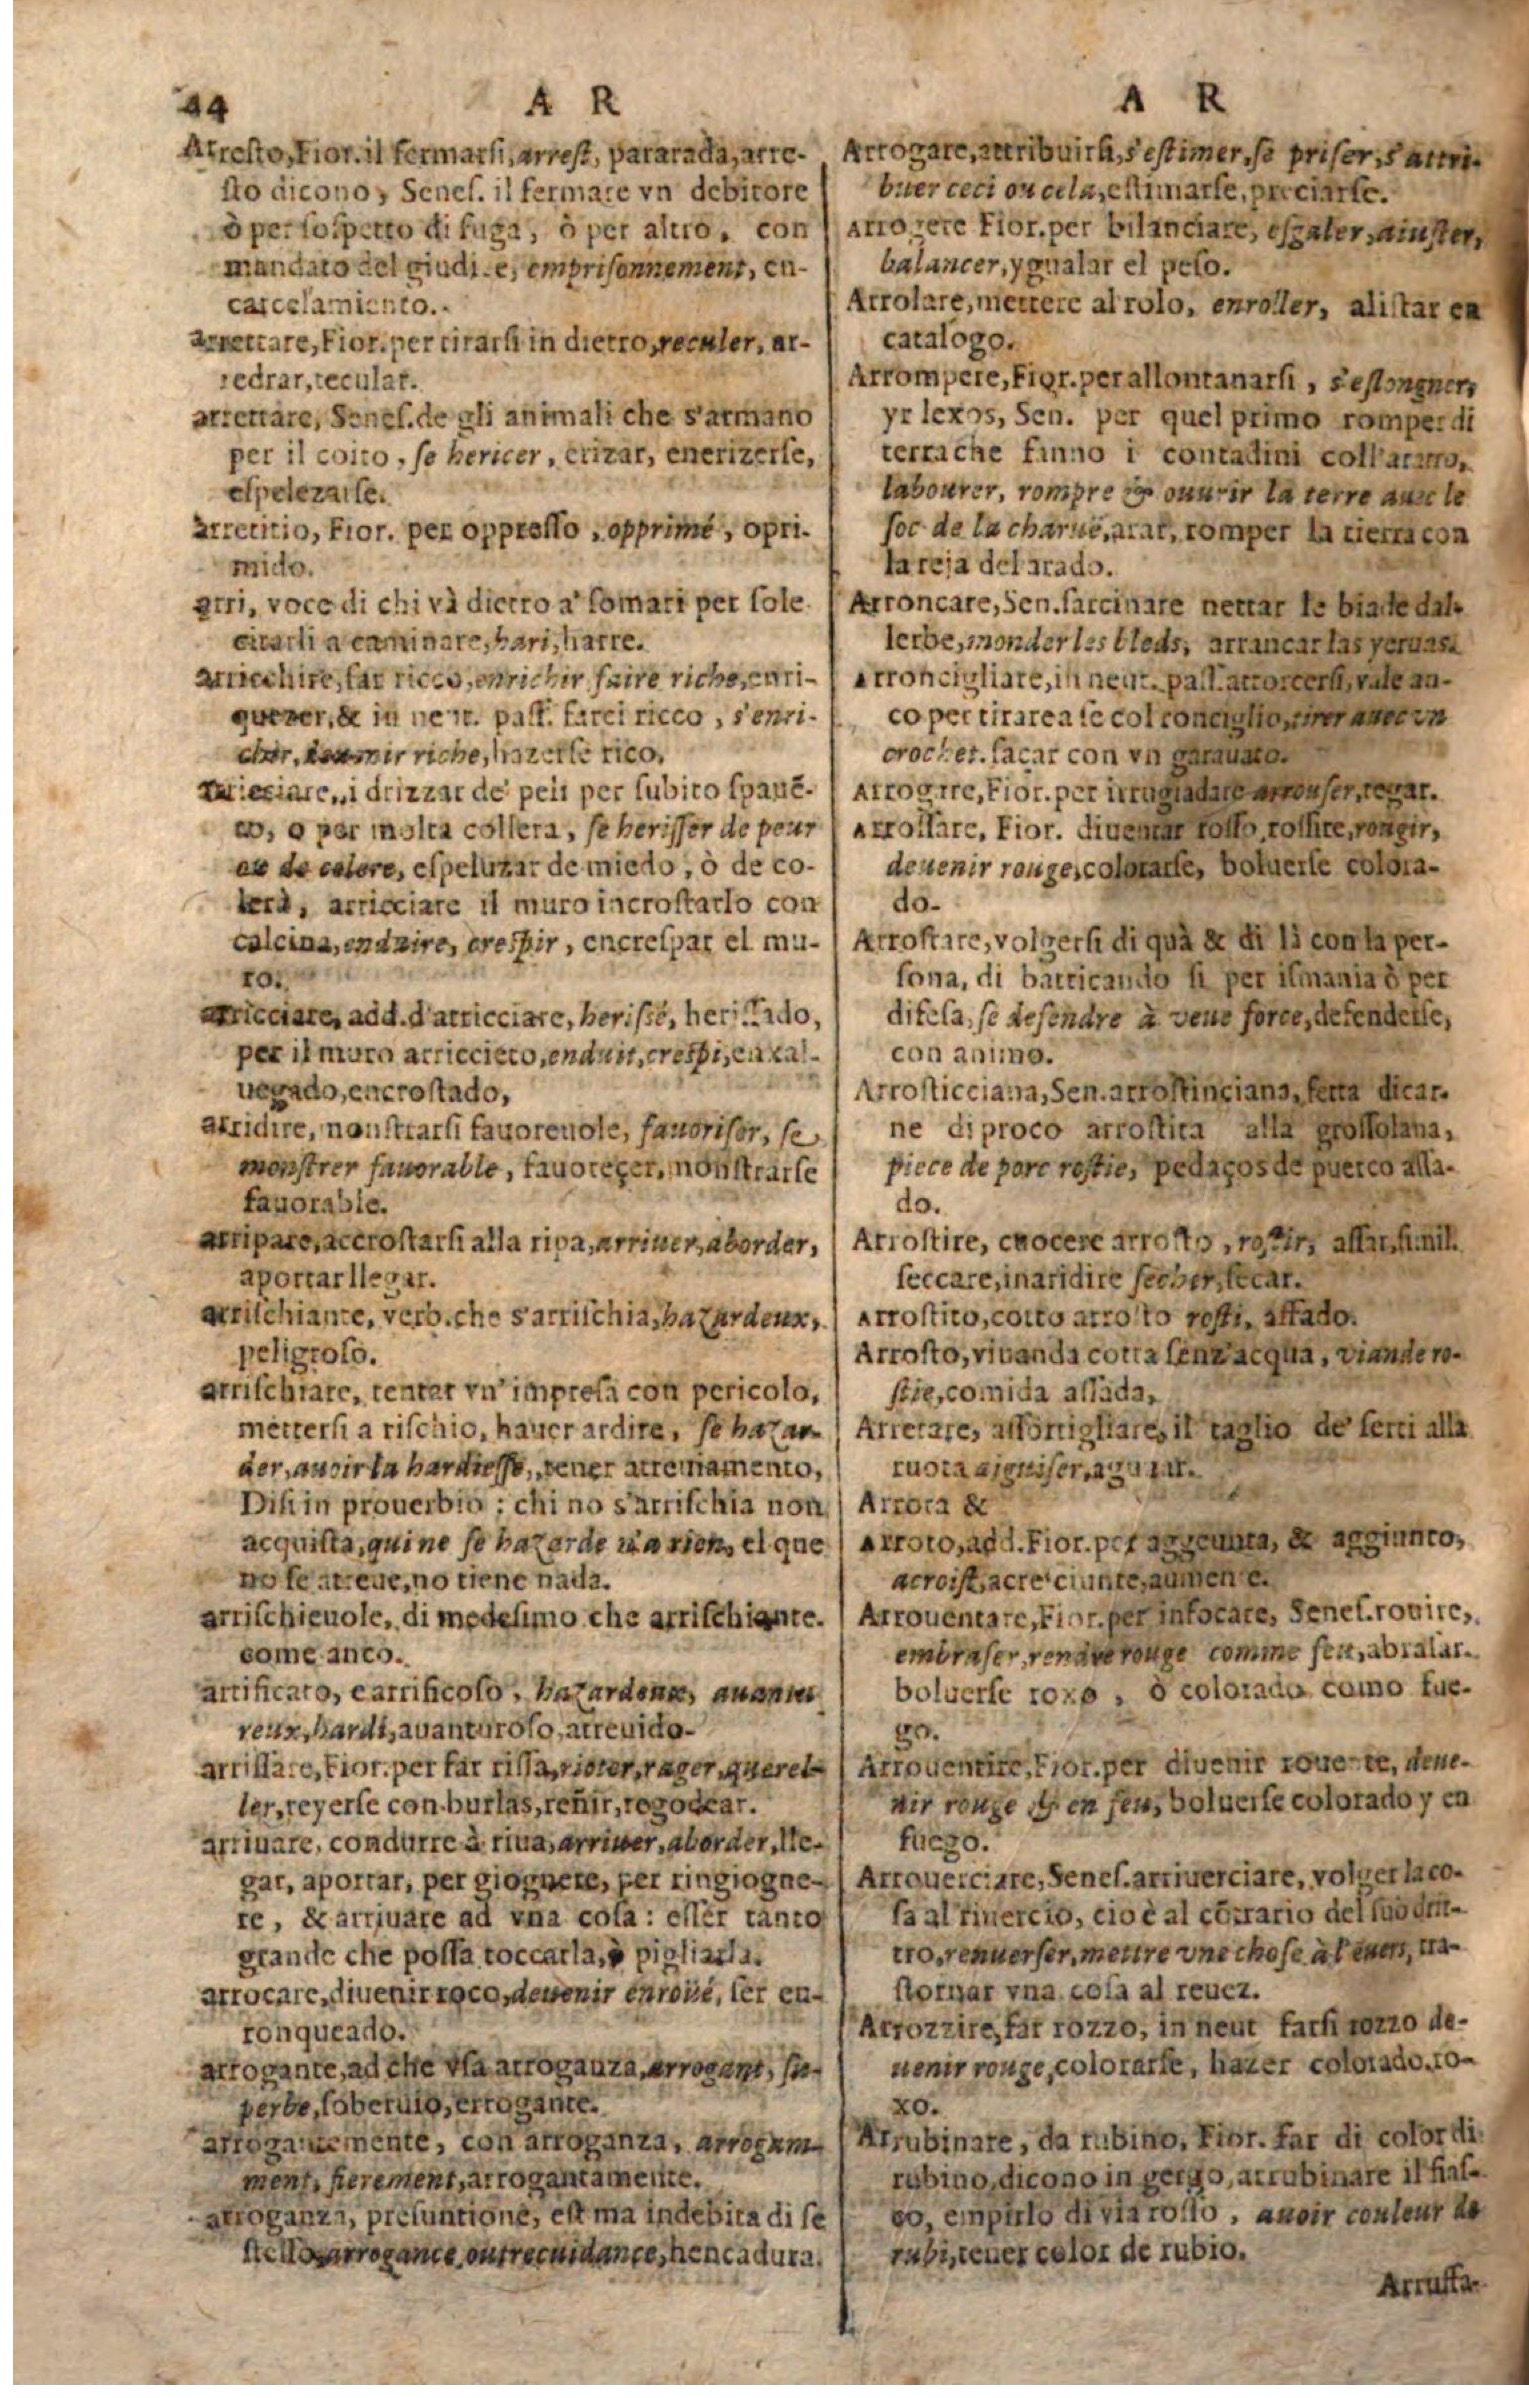 44 A R
Arresto, Fior. il fermarsi, arrest, pararada, arre-
sto dicono, Senes. il fermare vn debitore
ò per sospetto di fuga, ò per altro, con
mandato del giudi e, emprisonnement, en-
carcelamiento.
arrettare, Fior. per tirarsi in dietro, reculer, ar-
redrar, recular.
arrettare, Senes. de gli animali che s'armano
per il coito, se hericer, erizar, enerizerse,
espelezarse.
arretitio, Fior. per oppresso, opprimé, opri-
mido.
arri, voce di chi và dietro a' somari per sole
citarli a caminare, hari, harre.
arricchire, far ricco, enrichir faire riche, enri-
quezer, & in neut. pass. farci ricco, s'enri-
chir, deuenir riche, hazerse rico.
arricciare, i drizzar de' peli per subito spauē-
to, o per molta collera, se herisser de peur
ou de colere, espeluzar de miedo, ò de co-
lera, arricciare il muro incrostarlo con
calcina, enduire, crespir, encrespar el mu-
ro.
arricciare, add. d'arricciare, herissé, herissado,
per il muro arriccieto, enduit, crespi, enxal-
uegado, encrostado,
arridire, monstrarsi fauoreuole, fauoriser, se
monstrer fauorable, fauoreçer, monstrarse
fauorable.
arripare, accrostarsi alla ripa, arriuer, aborder,
aportar llegar.
arrischiante, verb. che s'arrischia, hazardeux,
peligroso.
arrischiare, tentar vn' impresa con pericolo,
mettersi a rischio, hauer ardire, se hazar-
der, auoir la hardiesse, tener atreuiamento,
Disi in prouerbio : chi no s'arrischia non
acquista, qui ne se hazarde n'a rien, el que
no se atreue, no tiene nada.
arrischieuole, di medesimo che arrischiante.
come anco.
arrificato, e arrificoso, hazardeux, auantu
reux, hardi, auanturoso, atreuido-
arrissare, Fior. per far rissa, rioter, rager, querel-
ler, reyerse con burlas, reñir, regodear.
arriuare, condurre à riua, arriuer, aborder, lle-
gar, aportar, per giognere, per ringiogne-
re, & arriuare ad vna cosa : esser tanto
grande che possa toccarla, ò pigliarla.
arrocare, diuenir roco, deuenir enroüé, ser en-
ronqueado.
arrogante, ad che vsa arroganza, arrogant, su-
perbe, soberuio, errogante.
arrogantemente, con arroganza, arrogam-
ment, fierement, arrogantamente.
arroganza, presuntione, est ma indebita di se
stesso arrogance, outrecuidance, hencadura.
A R
Arrogare, attribuirsi, s'estimer, se priser, s'attri-
buer ceci ou cela, estimarse, preciarse.
Arrogere Fior. per bilanciare, esgaler, aiuster,
balancer, ygualar el peso.
Arrolare, mettere al rolo, enroller, alistar en
catalogo.
Arrompere, Fior. per allontanarsi, s'eslongner,
yr lexos, Sen. per quel primo romper di
terra che fanno i contadini coll'aratro,
labourer, rompre & ouurir la terre auec le
soc de la charuë, arar, romper la tierra con
la reja del arado.
Arroncare, Sen. sarcinare nettar le biade dal-
lerbe, monder les bleds, arrancar las yeruas.
Arroncigliare, in neut. pass. attorcersi, vale an-
co per tirare a se col ronciglio, tirer auec vn
crochet. saçar con vn garauato.
Arrogare, Fior. per irrugiadare arrouser, regar.
Arrossare, Fior. diuentar rosso, rossire, rougir,
deuenir rouge, colorarse, boluerse colora-
do-
Arrostare, volgersi di quà & di là con la per-
sona, di barricando si per ismania ò per
difesa, se defendre à veue force, defenderse,
con animo.
Arrosticciana, Sen. arrostinciana, fetta dicar-
ne di proco arrostita alla grossolana,
piece de porc rostie, pedaços de puerco assa-
do.
Arrostire, cuocere arrosto, rostir, assar, simil.
seccare, inaridire secher, secar.
Arrostito, cotto arrosto rosti, assado.
Arrosto, viuanda cotta senz'acqua, viande ro-
stie, comida assada,
Arretare, assortigliare, il taglio de' ferri alla
ruota aiguiser, aguzar.
Arrota &
Arroto, add. Fior. per aggeunta, & aggiunto,
acroist, acre ciunte, aumen e.
Arrouentare, Fior. per infocare, Senes. rouire,
embraser, rendre rouge comme feu, abrasar.
boluerse roxo, ò colorado como fue-
go.
Arrouentire, Fior. per diuenir rouente, deue-
nir rouge & en feu, boluerse colorado y en
fuego.
Arrouerciare, Senes. arriuerciare, volger la co-
sa al riuercio, cioè al cōtrario del suo drit-
tro, renuerser, mettre vne chose à l'enuers, tra-
stornar vna cosa al reuez.
Arrozzire, far rozzo, in neut farsi rozzo de-
uenir rouge, colorarse, hazer colorado, ro-
xo.
Arrubinare, da rubino, Fior. far di color di
rubino, dicono in gergo, arrubinare il fias-
co, empirlo di via rosso, auoir couleur de
rubi, tener color de rubio.
Arruffa-